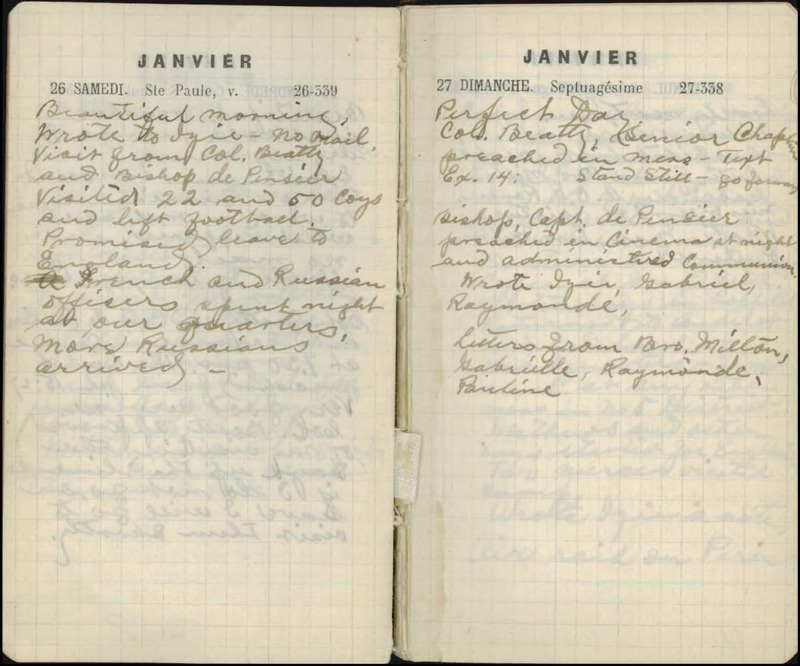 JANVIER
26 SAMEDI. Ste Paule, v. 26-339
Beautiful morning,
Wrote to Izie - no mail,
Visit from Col. Beatty
and Bishop de Pensier
Visited 22 and 50 Coys
and left football.
Promised leave to
England.
French and Russian
officers spent night
at our quarters,
More Russians
arrived -
JANVIER
27 DIMANCHE. Septuagésime 27-338
Perfect Day
Col. Beatty, Senior Chaplain
preached in mess - Text
Ex. 14: Stand Still - go forward
Bishop, Capt. de Pensier
preached in Cinema at night
and administered Communion.
Wrote Izie, Gabriel,
Raymonde,
Letters from Bro. Milton,
Gabrielle, Raymonde,
Pauline